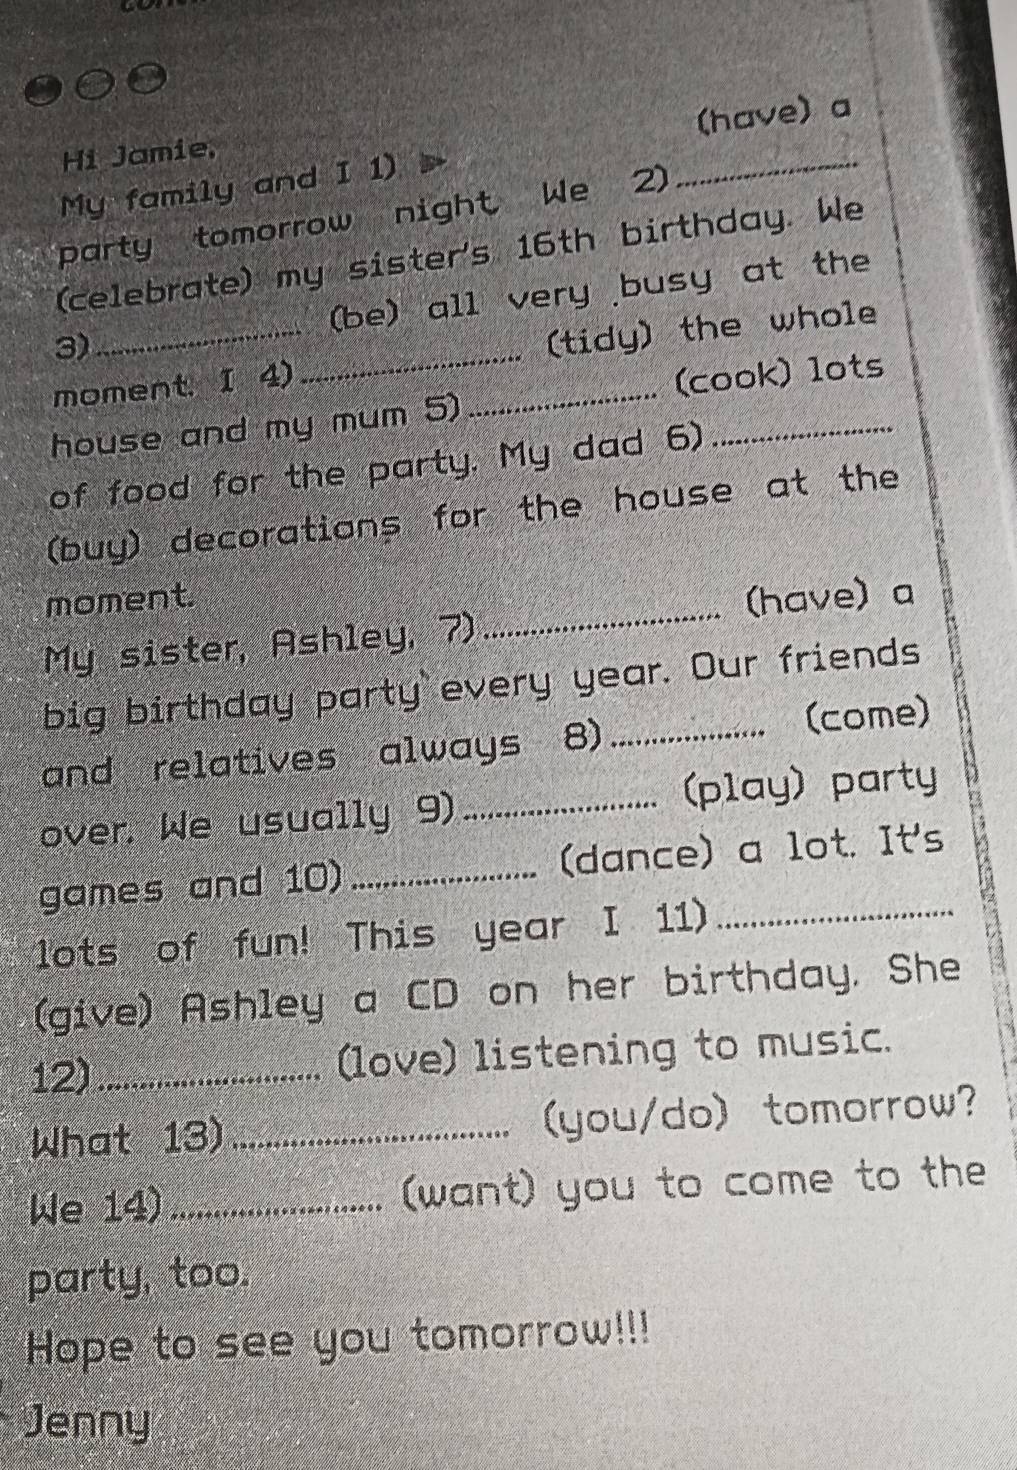 Hi Jamie,
My family and I 1) (have) a
party tomorrow night. We 2) ....................
(celebrate) my sister's 16th birthday. We
3) .................... (be) all very busy at the
moment. I 4) .................... (tidy) the whole
house and my mum 5) .................... (cook) lots
of food for the party. My dad 6) ....................
(buy) decorations for the house at the
moment.
My sister, Ashley, 7) .................... (have) a
big birthday party every year. Our friends
and relatives always 8) .................... (come)
over. We usually 9) .................... (play) party
games and 10) .................... (dance) a lot. It's
lots of fun! This year I 11) ....................
(give) Ashley a CD on her birthday. She
12) .................... (love) listening to music.
What 13) .................... (you/do) tomorrow?
We 14) .................... (want) you to come to the
party, too.
Hope to see you tomorrow!!!
Jenny